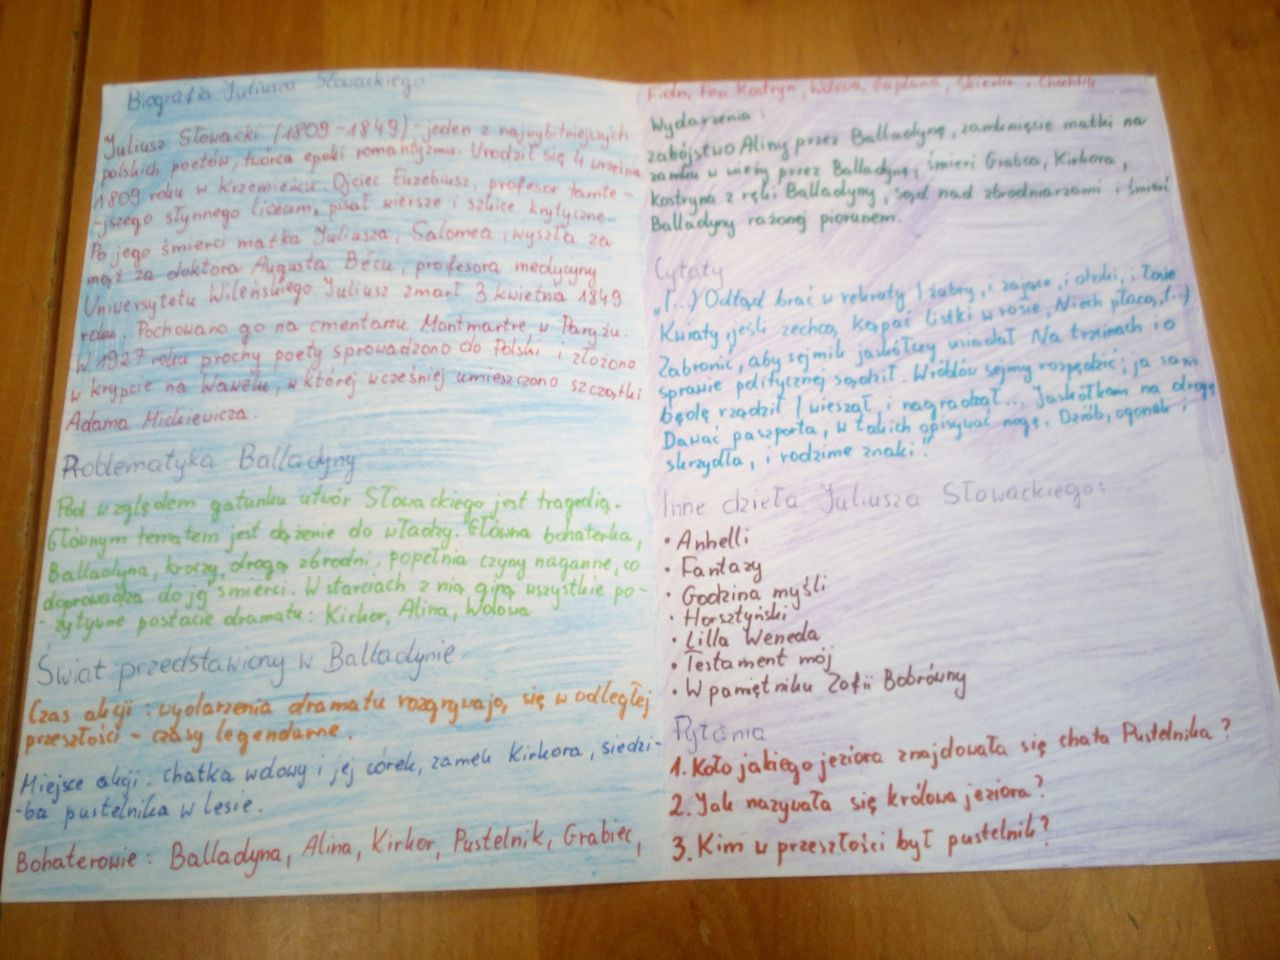 Biografia Juliusza Słowackiego
Juliusz Słowacki (1809-1849) - jeden z najwybitniejszych
polskich poetów, twórca epoki romantyzmu. Urodził się 4 września
1809 roku w Krzemieńcu. Ojciec Euzebiusz, profesor tamte-
-jszego słynnego liceum, pisał wiersze i szkice krytyczne.
Po jego śmierci matka Juliusza, Salomea, wyszła za
mąż za doktora Augusta Bécu, profesora medycyny
Uniwersytetu Wileńskiego. Juliusz zmarł 3 kwietnia 1849
roku. Pochowano go na cmentarzu Montmartre w Paryżu.
W 1927 roku prochy poety sprowadzono do Polski i złożono
w krypcie na Wawelu, w której wcześniej umieszczono szczątki
Adama Mickiewicza.
Problematyka Balladyny
Pod względem gatunku utwór Słowackiego jest tragedią.
Głównym tematem jest dążenie do władzy. Główna bohaterka,
Balladyna, kroczy drogą zbrodni, popełnia czyny naganne, co
doprowadza do jej śmierci. W starciach z nią giną wszystkie po-
-zytywne postacie dramatu: Kirkor, Alina, Wdowa
Świat przedstawiony w Balladynie
Czas akcji: wydarzenia dramatu rozgrywają się w odległej
przeszłości - czasy legendarne.
Miejsce akcji: chatka wdowy i jej córek, zamek Kirkora, siedzi-
-ba pustelnika w lesie.
Bohaterowie: Balladyna, Alina, Kirkor, Pustelnik, Grabiec,
Filon, Fon Kostryn, Wdowa, Goplana, Skierka i Chochlik
Wydarzenia:
zabójstwo Aliny przez Balladynę, zamknięcie matki na
zamku w wieży przez Balladynę, śmierć Grabca, Kirkora,
Kostryna z ręki Balladyny, sąd nad zbrodniarzami i śmierć
Balladyny rażonej piorunem.
Cytaty
"(...) Odtąd brać w rekruty / żubry, i zające, i dziki, i łosie
Kwiaty, jeśli zechcą, kąpać listki w rosie, Niech płacą, (...)
Zabronić, aby sejmik jaskółczy usiadał Na trzcinach i o
sprawie politycznej sądził. Wróblów sejmy rozpędzić; ja sam
będę rządził / wieszał, i nagradzał... Jaskółkom na drogę
Dawać paszporta, w takich opisywać nogę, Dziób, ogonek i
skrzydła, i rodzime znaki".
Inne dzieła Juliusza Słowackiego:
• Anhelli
• Fantazy
• Godzina myśli
• Horsztyński
• Lilla Weneda
• Testament mój
• W pamiętniku Zofii Bobrówny
Pytania
1. Koło jakiego jeziora znajdowała się chata Pustelnika?
2. Jak nazywała się królowa jeziora?
3. Kim w przeszłości był pustelnik?